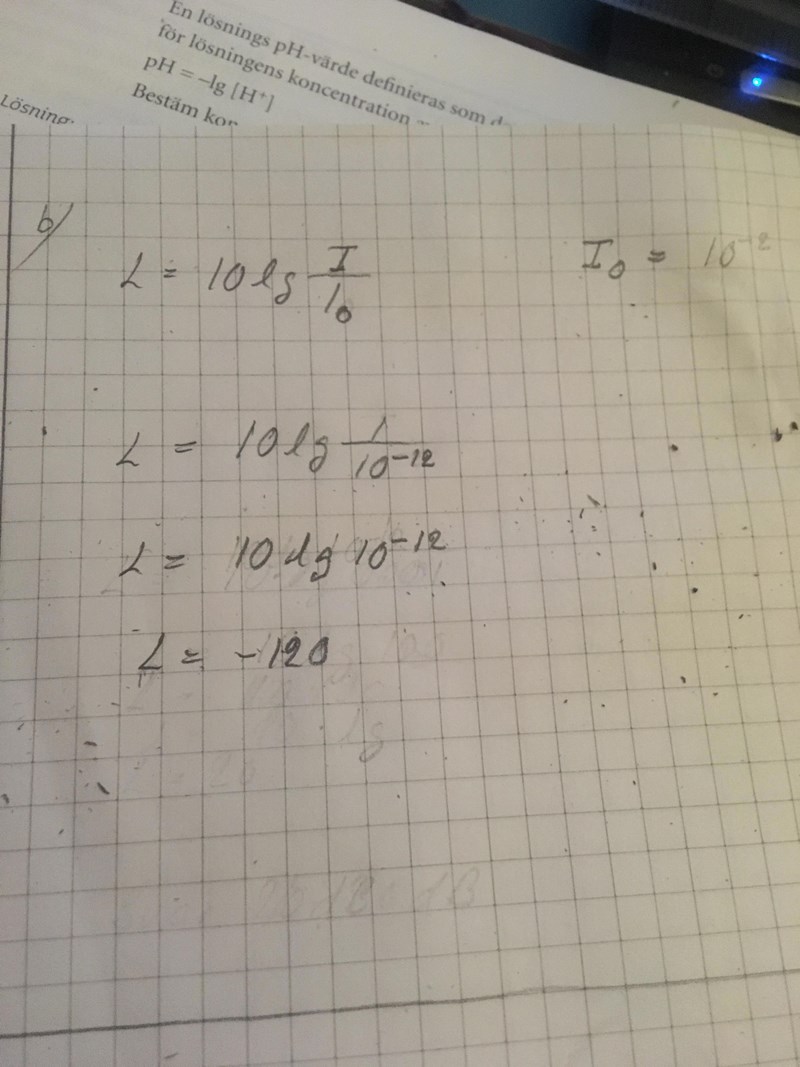 En lösnings pH-värde definieras som
för lösningens koncentration
pH = –lg [H⁺]
Bestäm
Lösning.
b/
L = 10 lg I/I₀
I₀ = 10⁻²
L = 10 lg 1/10⁻¹²
L = 10 lg 10⁻¹²
L = -120